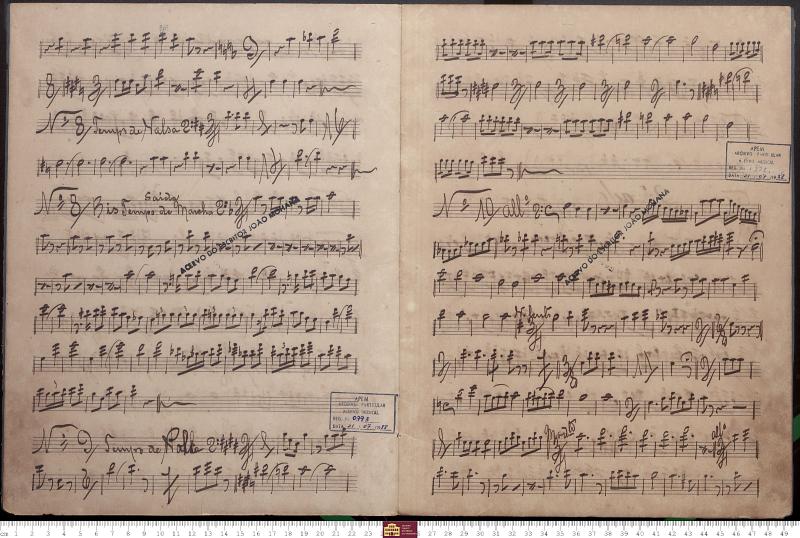 Nº 8 Tempo de Valsa
Nº 8 Bis Saída
Tempo de Marcha
ACERVO DO ESCRITOR JOÃO MOHANA
APEM
ARQUIVO PARTICULAR
ACERVO MUSICAL
REG. Nº 0993
DATA 01.07.1988
Nº 9 Tempo de Polka
APEM
ARQUIVO PARTICULAR
ACERVO MUSICAL
Nº 10 All.º
ACERVO DO ESCRITOR JOÃO MOHANA
All.º
cm 1 2 3 4 5 6 7 8 9 10 11 12 13 14 15 16 17 18 19 20 21 22 23 27 28 29 30 31 32 33 34 35 36 37 38 39 40 41 42 43 44 45 46 47 48 49